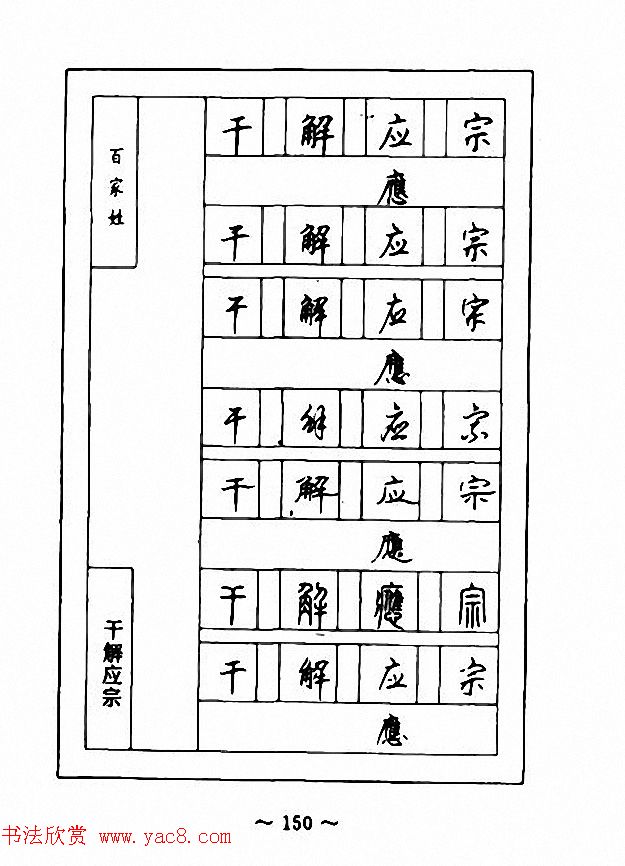 百家姓
干 解 应 宗
應
干 解 应 宗
干 解 应 宗
應
干 解 应 宗
干 解 应 宗
應
干 解 應 宗
干 解 应 宗
應
干解应宗
~ 150 ~
书法欣赏 www.yac8.com